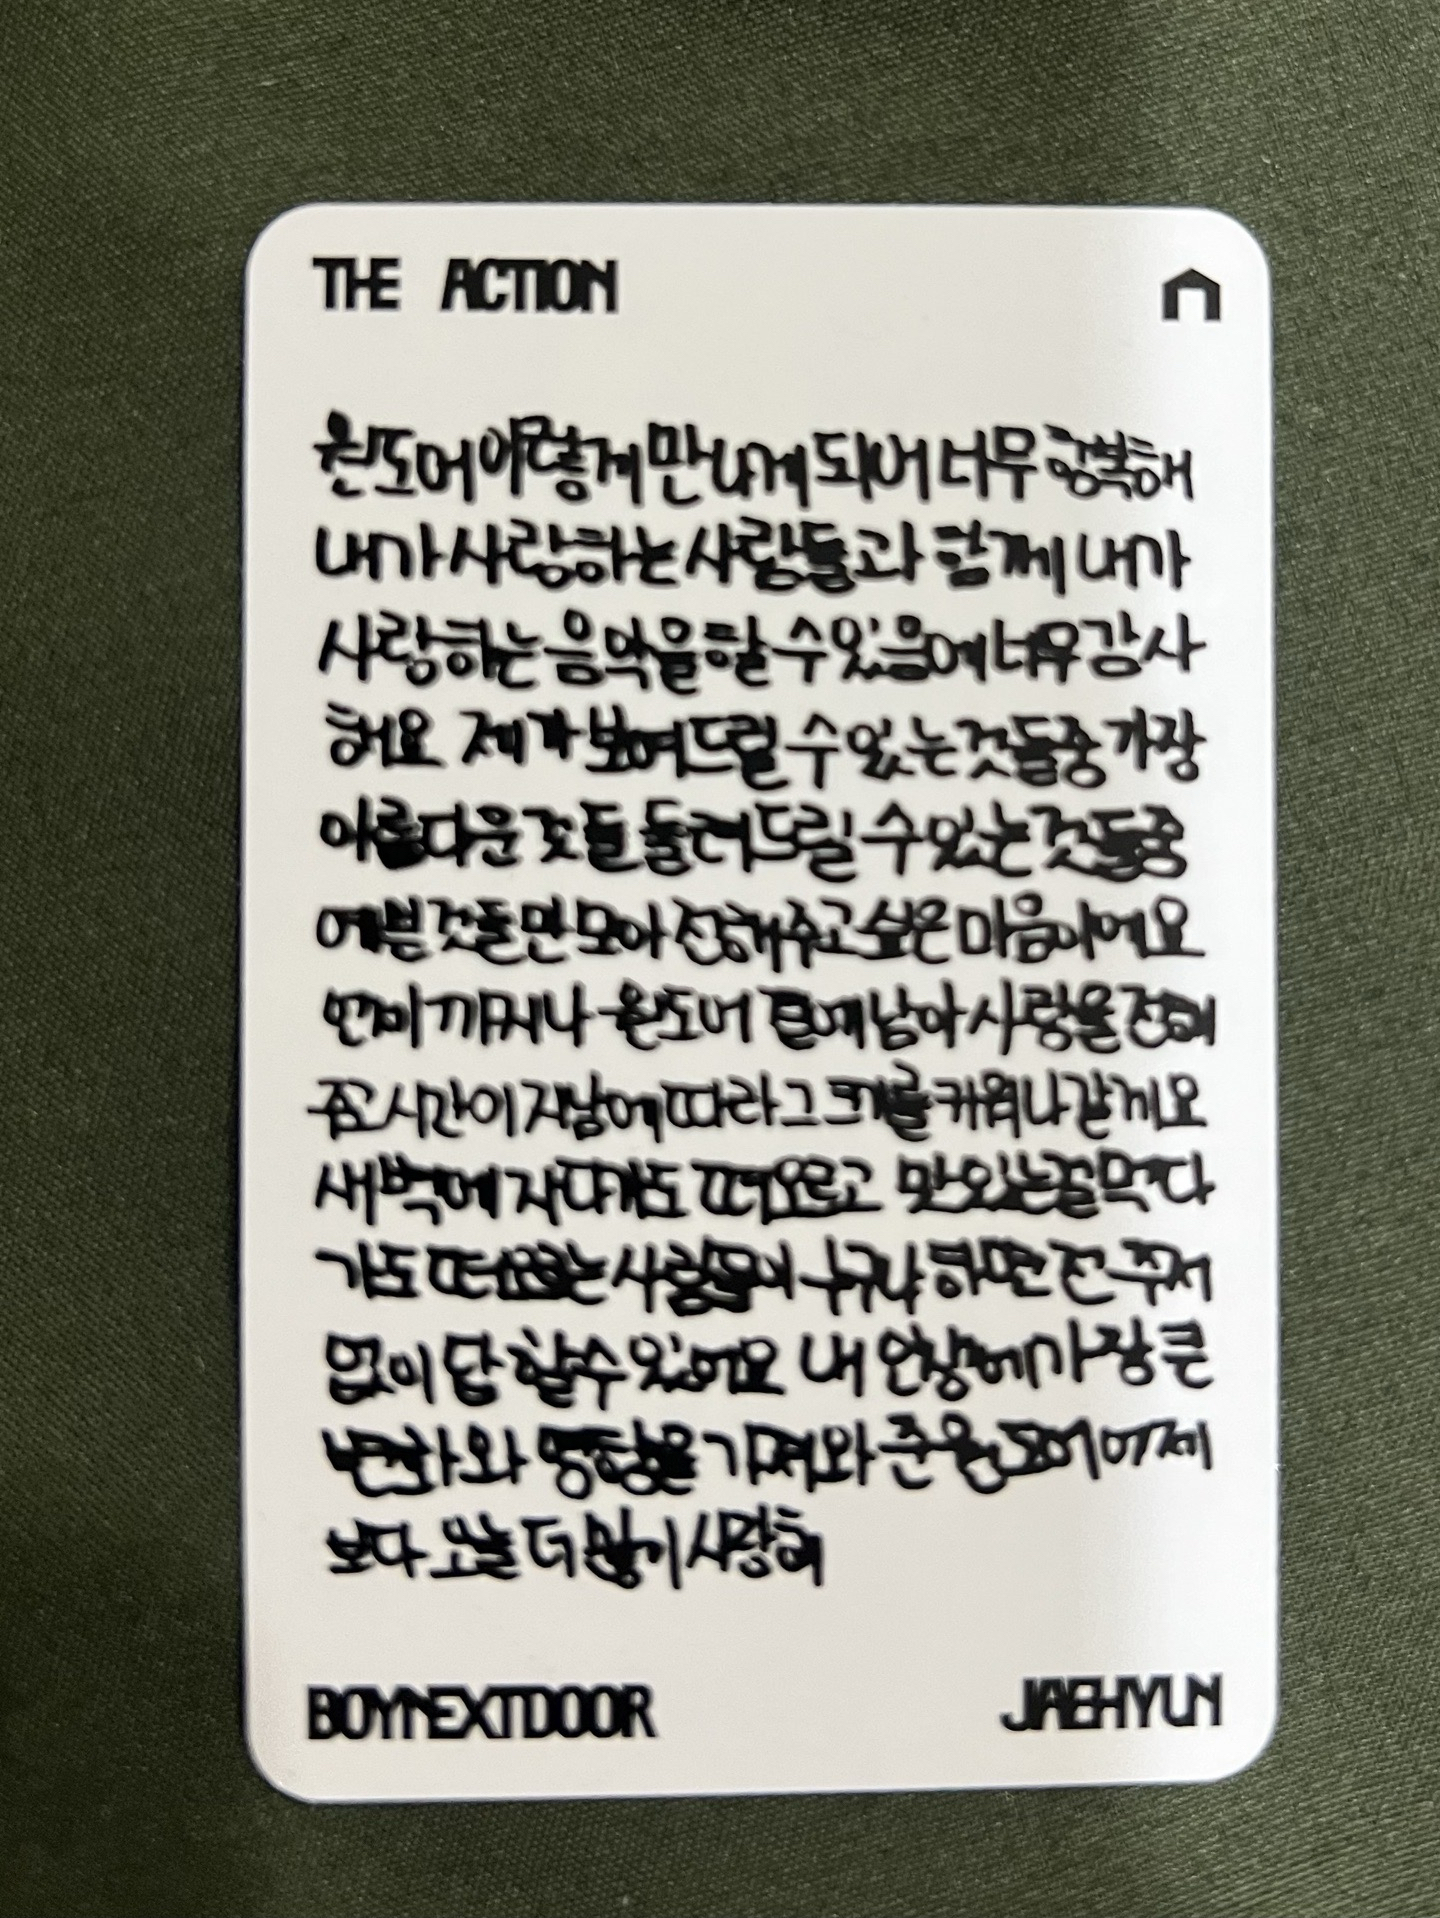 THE ACTION
원도어 이렇게 만나게 되어 너무 행복해
내가 사랑하는 사람들과 함께 내가
사랑하는 음악을 할 수 있음에 너무 감사
해요 제가 보여드릴 수 있는 것들 중 가장
아름다운 것들 들려드릴 수 있는 것들 중
예쁜 것들만 모아 전해주고 싶은 마음이에요
언제까지나 원도어 곁에 남아 사랑을 전해
주고 시간이 지남에 따라 그 크기를 키워나갈께요
새벽에 자다가도 떠오르고 맛있는걸 먹다
가도 떠오르는 사람들이 누구냐 하면 전 주저
없이 답 할 수 있어요 내 인생에 가장 큰
변화와 영향을 가져와 준 원도어 어제
보다 오늘 더 많이 사랑해
BOYNEXTDOOR
JAEHYUN